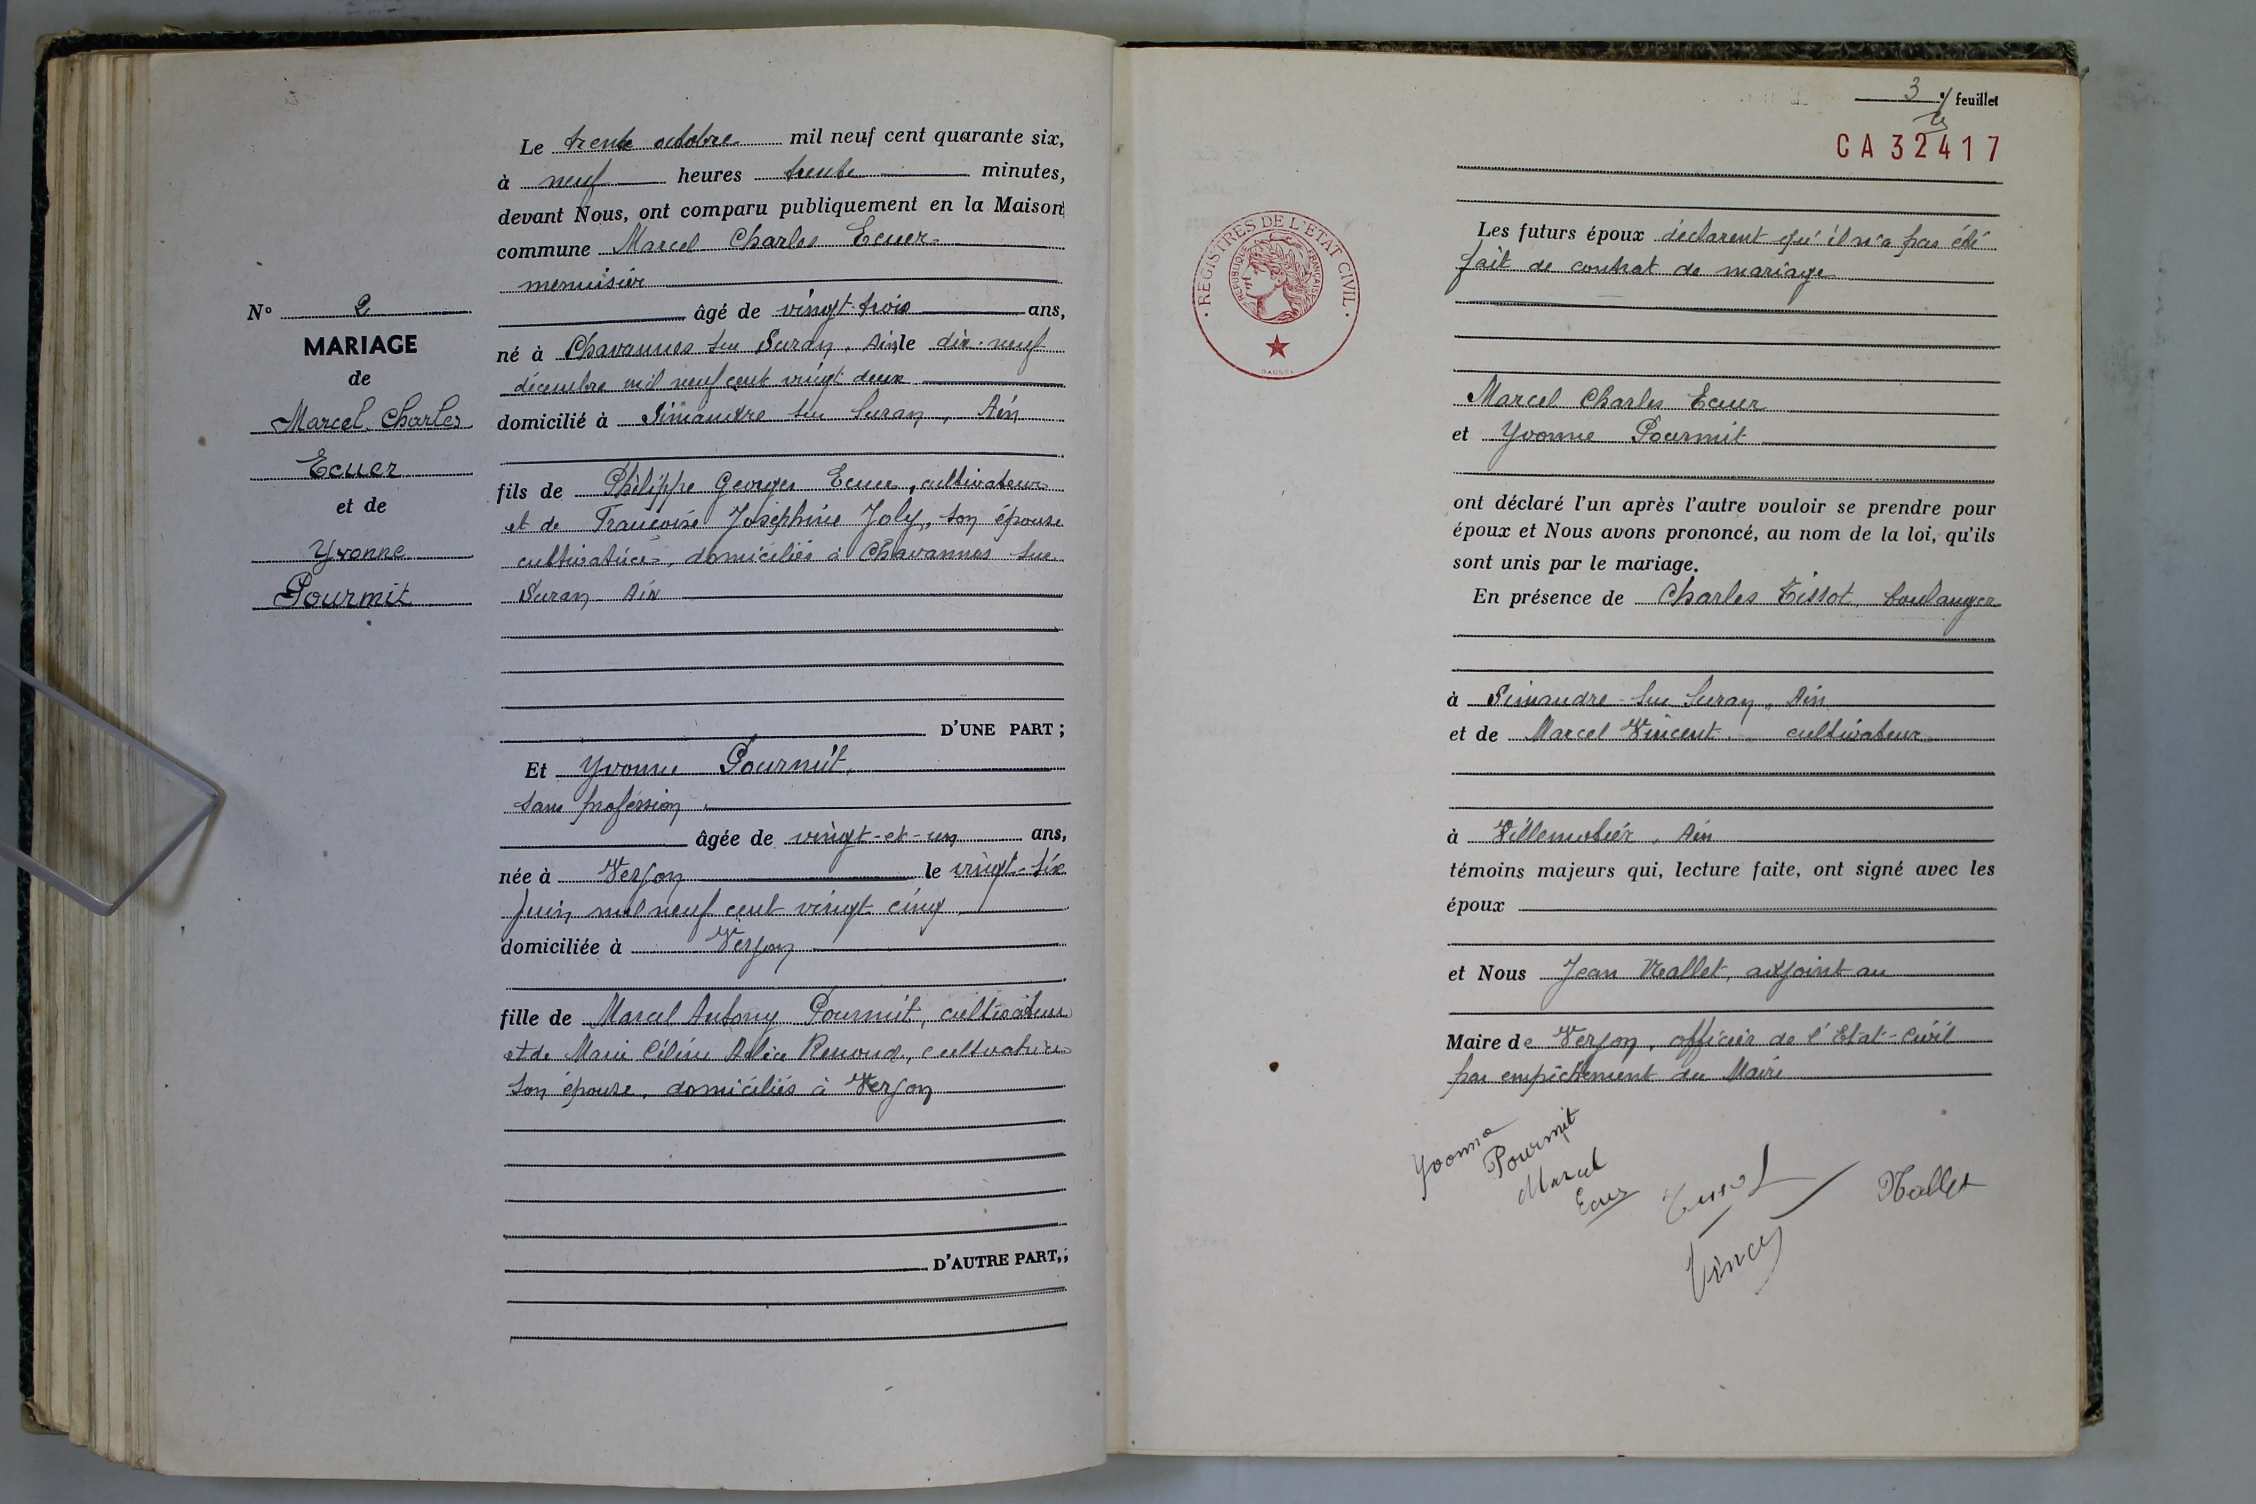 Le trente octobre mil neuf cent quarante six,
à neuf heures trente minutes,
devant Nous, ont comparu publiquement en la Maison
commune Marcel Charles Ecuer
menuisier
âgé de vingt-trois ans,
né à Chavannes sur Suran, Ain, le dix-neuf
décembre mil neuf cent vingt deux
domicilié à Simandre sur Suran, Ain
fils de Philippe Georges Ecuer, cultivateur
et de Françoise Joséphine Joly, son épouse
cultivatrice, domiciliés à Chavannes sur
Suran Ain
D'UNE PART ;
Et Yvonne Pourmit,
sans profession
âgée de vingt-et-un ans,
née à Verjon le vingt-six
juin mil neuf cent vingt cinq
domiciliée à Verjon
fille de Marcel Antony Pourmit, cultivateur
et de Marie Céline Alice Renoud, cultivatrice
son épouse, domiciliés à Verjon
D'AUTRE PART,;
N° 2
MARIAGE
de
Marcel Charles
Ecuer
et de
Yvonne
Pourmit
3 feuillet
CA32417
REGISTRES DE L'ÉTAT CIVIL
RÉPUBLIQUE FRANÇAISE
Les futurs époux déclarent qu'il n'a pas été
fait de contrat de mariage
Marcel Charles Ecuer
et Yvonne Pourmit
ont déclaré l'un après l'autre vouloir se prendre pour
époux et Nous avons prononcé, au nom de la loi, qu'ils
sont unis par le mariage.
En présence de Charles Tissot, boulanger
à Simandre sur Suran, Ain
et de Marcel Vincent cultivateur
à Villemotier, Ain
témoins majeurs qui, lecture faite, ont signé avec les
époux
et Nous Jean Nallet, adjoint au
Maire de Verjon, officier de l'Etat-Civil
par empêchement du Maire
Yvonne
Pourmit
Marcel
Ecuer
Tissot
Nallet
Vincent